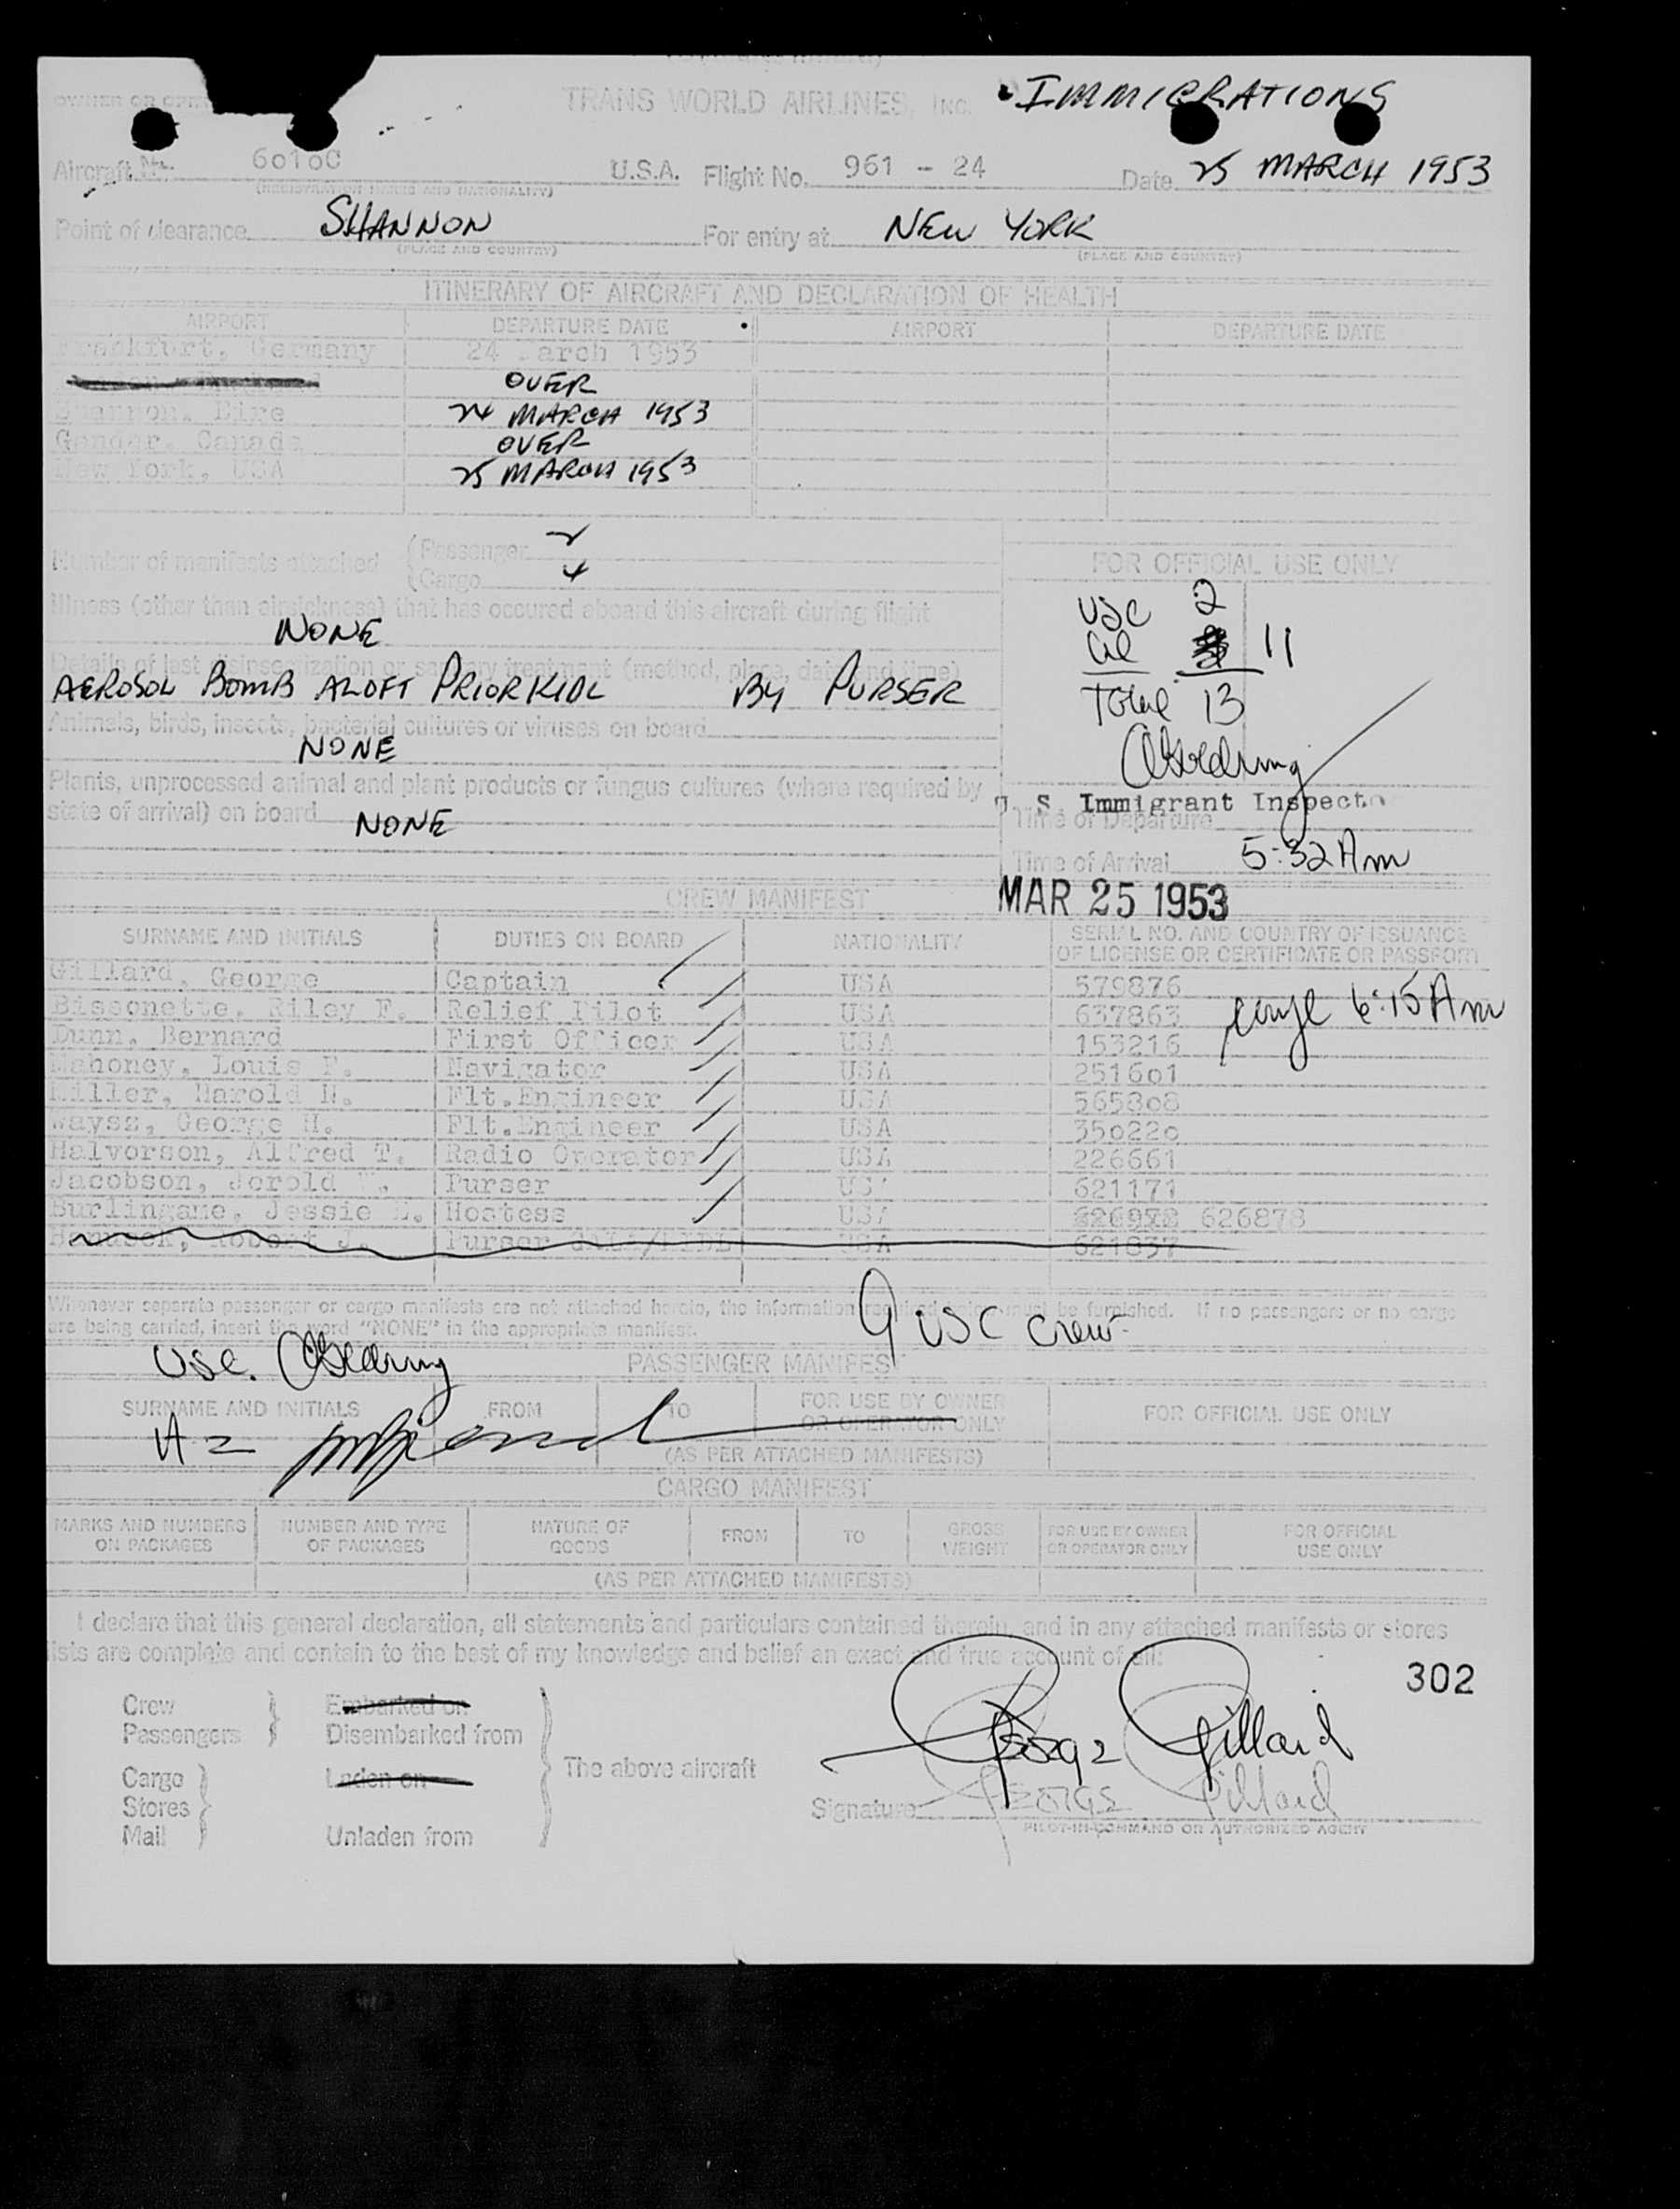 TRANS WORLD AIRLINES, INC. IMMIGRATIONS
Aircraft No. 6010C U.S.A. Flight No. 961 - 24 Date 25 MARCH 1953
(REGISTRATION MARKS AND NATIONALITY)
Point of clearance SHANNON For entry at NEW YORK
(PLACE AND COUNTRY) (PLACE AND COUNTRY)
ITINERARY OF AIRCRAFT AND DECLARATION OF HEALTH
AIRPORT DEPARTURE DATE AIRPORT DEPARTURE DATE
Frankfurt, Germany 24 March 1953
OVER
Shannon, Eire 24 MARCH 1953
Gander, Canada OVER
New York, USA 25 MARCH 1953
Number of manifests attached (Passenger 2
(Cargo 4
FOR OFFICIAL USE ONLY
Illness (other than airsickness) that has occured aboard this aircraft during flight
NONE
USC 2
11
Details of last disinsectization or sanitary treatment (method, place, date and time)
AEROSOL BOMB ALOFT PRIOR KIDL BY PURSER
Total 13
Animals, birds, insects, bacterial cultures or viruses on board
NONE
Plants, unprocessed animal and plant products or fungus cultures (where required by
state of arrival) on board NONE
U. S. Immigrant Inspector
Time of Departure
Time of Arrival 5:32 Am
CREW MANIFEST MAR 25 1953
SURNAME AND INITIALS DUTIES ON BOARD NATIONALITY SERIAL NO. AND COUNTRY OF ISSUANCE
OF LICENSE OR CERTIFICATE OR PASSPORT
Gillard, George Captain USA 579876
Bissonette, Riley F. Relief Pilot USA 637863 6:15 Am
Dunn, Bernard First Officer USA 153216
Mahoney, Louis F. Navigator USA 251601
Miller, Harold N. Flt.Engineer USA 565808
Wayss, George H. Flt.Engineer USA 350220
Halvorson, Alfred T. Radio Operator USA 226661
Jacobson, Jerold Purser USA 621171
Burlingame, Jessie L. Hostess USA 626878
Robert J. Purser USA 621837
Whenever separate passenger or cargo manifests are not attached hereto, the information required below must be furnished. If no passengers or no cargo
are being carried, insert the word "NONE" in the appropriate manifest.
9 USC Crew
USC.
PASSENGER MANIFEST
SURNAME AND INITIALS FROM TO FOR USE BY OWNER OR OPERATOR ONLY FOR OFFICIAL USE ONLY
(AS PER ATTACHED MANIFESTS)
CARGO MANIFEST
MARKS AND NUMBERS ON PACKAGES NUMBER AND TYPE OF PACKAGES NATURE OF GOODS FROM TO GROSS WEIGHT FOR USE BY OWNER OR OPERATOR ONLY FOR OFFICIAL USE ONLY
(AS PER ATTACHED MANIFESTS)
I declare that this general declaration, all statements and particulars contained therein, and in any attached manifests or stores
lists are complete and contain to the best of my knowledge and belief an exact and true account of all:
302
Crew Embarked on
Passengers Disembarked from
Cargo Laden on The above aircraft
Stores
Mail Unladen from
George Gillard
Signature George Gillard
PILOT-IN-COMMAND OR AUTHORIZED AGENT